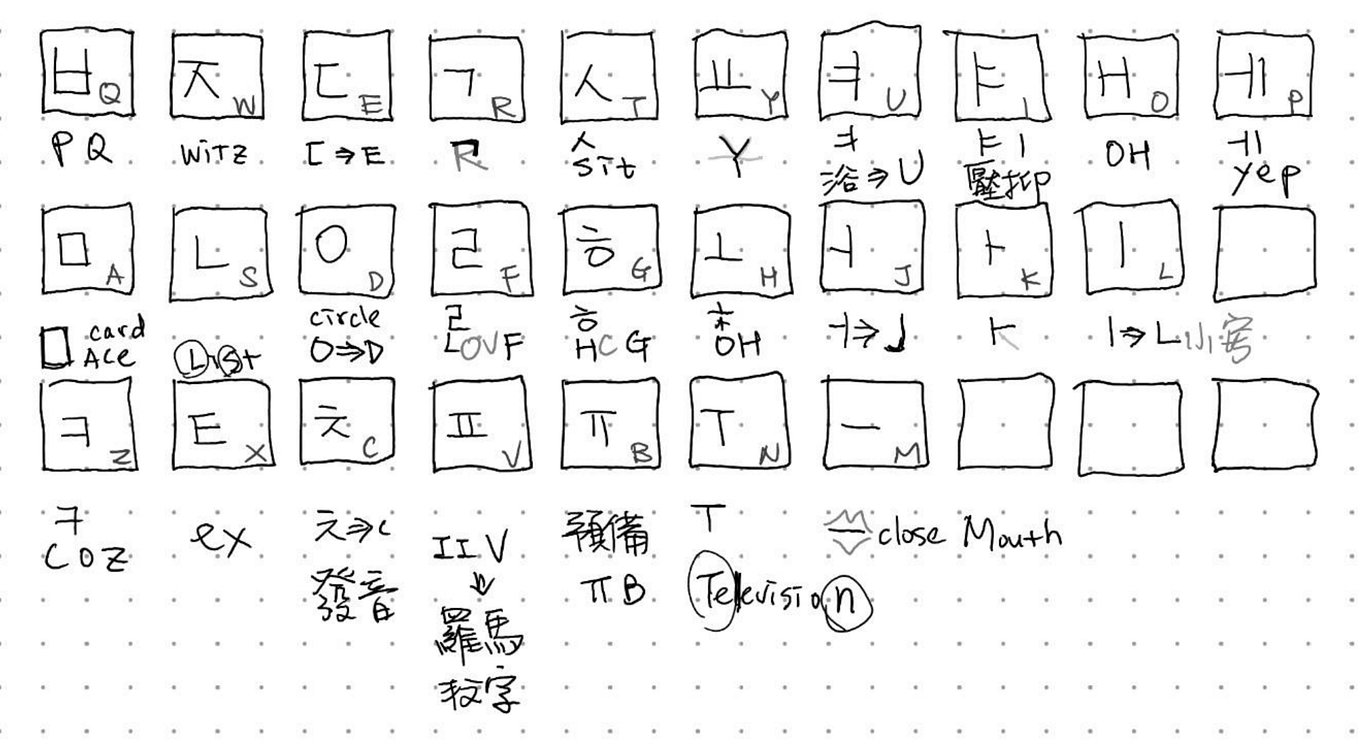 ㅂ Q ㅈ W ㄷ E ㄱ R ㅅ T ㅛ Y ㅕ U ㅑ I ㅐ O ㅔ P
P Q WiTZ ㄷ⇒E R ㅅ Y ㅕ ㅑ I OH ㅔ
Sit 浴⇒U 壓抑 yep
ㅁ A ㄴ S ㅇ D ㄹ F ㅎ G ㅗ H ㅓ J ㅏ K ㅣ L
ㅁ card circle ㄹ ㅎ ㅗ
ACe LiSt O⇒D LOVF HCG OH ㅓ⇒J K l⇒L小寫
ㅋ Z ㅌ X ㅊ C ㅍ V ㅠ B ㅜ N ㅡ M
ㅋ ex ㅊ⇒c IIV 預備 ㅜ ㅡ close Mouth
COZ 發音 ⇓ ㅠB Television
羅馬
数字